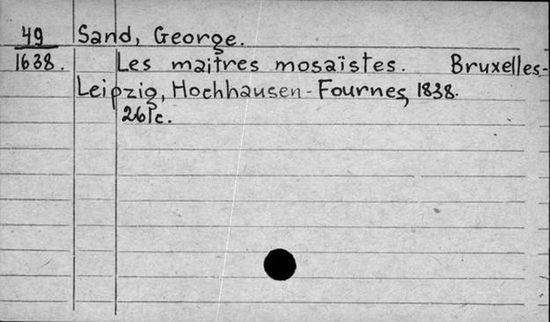 49 Sand, George.
1638. Les maîtres mosaïstes. Bruxelles-
Leipzig, Hochhausen-Fournes, 1838.